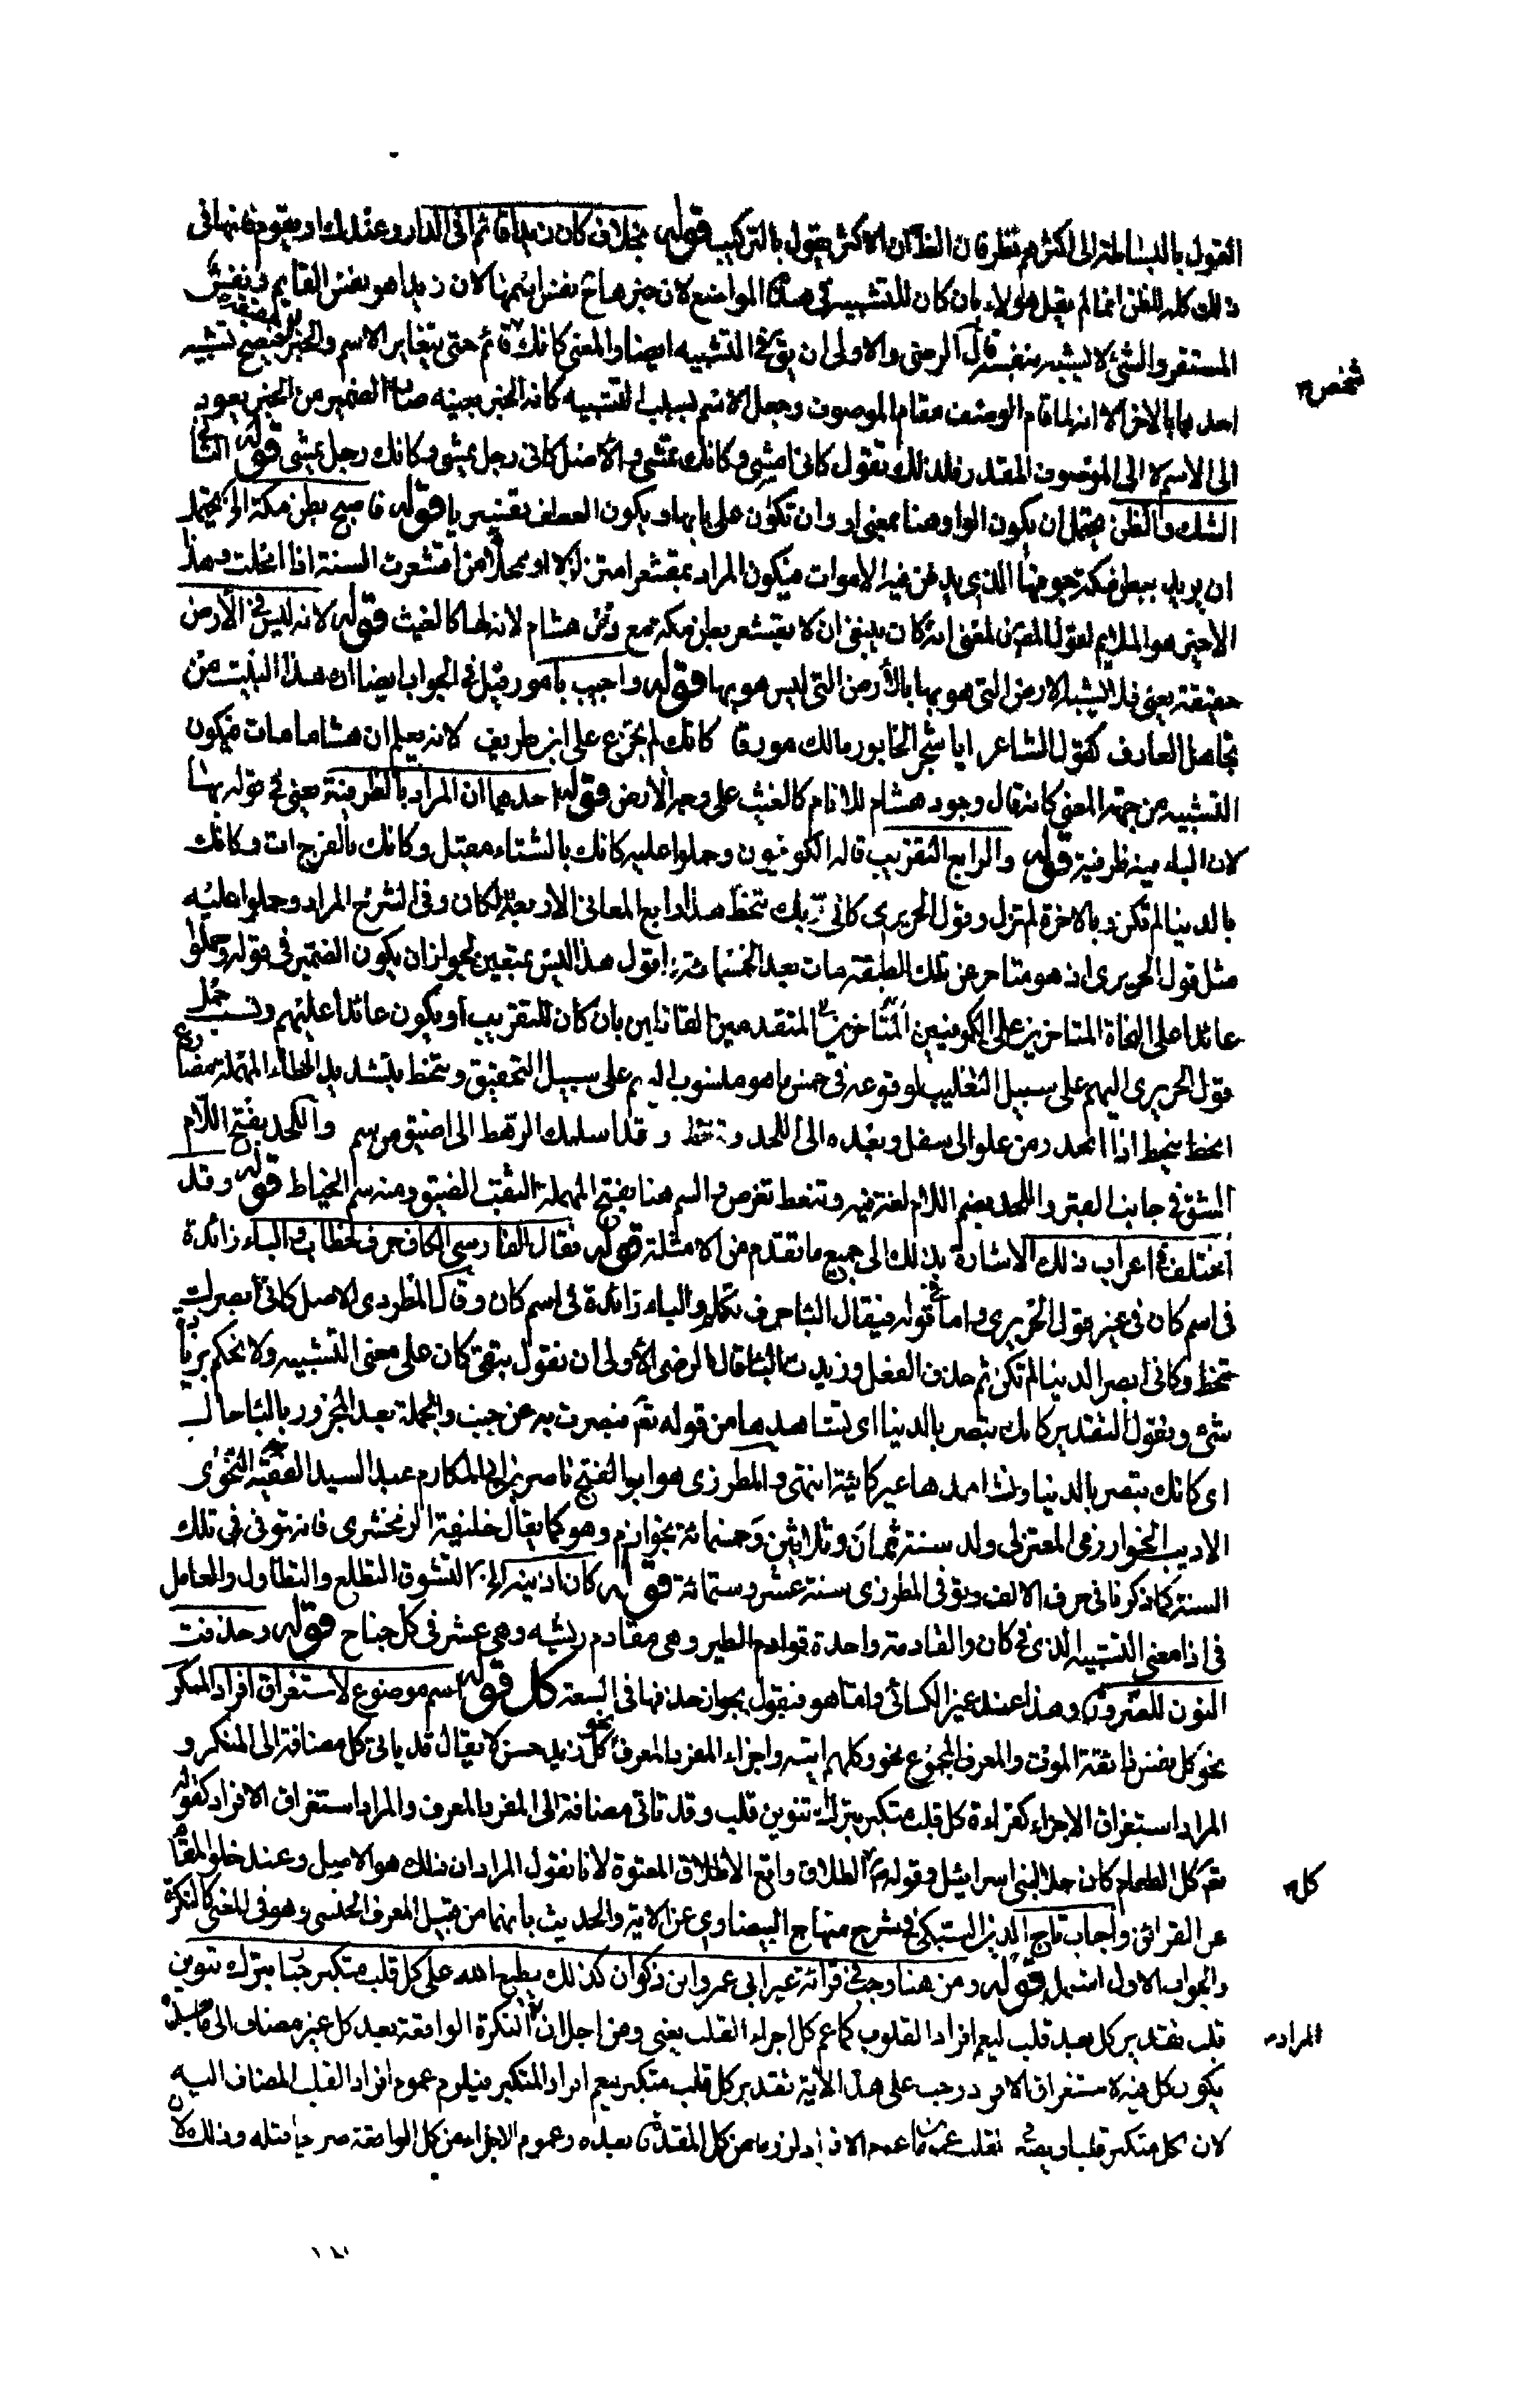 القول بالبساطة الى اكثرهم نظر فان الظاهر ان الاكثر يقول بالتركيب قوله بخلاف كان زيدا قائم او فى الدار او عندك او يقوم فانها فى
ذلك كله للظن انما لم يقل هؤلاء بان كان للتشبيه فى هذه المواضع لان خبرها فى نفس اسمها لان زيدا هو نفس القايم ونفس
المستقر والشئ لا يشبه بنفسه قال الرضى والاولى ان يق هى للتشبيه ايضا والمعنى كانك شخص قائم حتى يتغاير الاسم والخبر حقيقة فيصح تشبيه
احدهما بالاخر الا انه لما قام الوصف مقام الموصوف وجعل الاسم بسبب التشبيه كانه الخبر بعينه صار الضمير من الخبر يعود
الى الاسم لا الى الموصوف المقدر فلذلك تقول كانى امشى وكانك تمشى والاصل كانى رجل يمشى وكانك رجل يمشى قوله الثالث
الشك والظن يحتمل ان يكون الواو هنا بمعنى او وان تكون على بابها ويكون العطف تفسيريا قوله فاصبح بطن مكة الخ يحتمل
ان يريد ببطن مكة جوفها الذى يدفن فيه الاموات فيكون المراد بمقشعرا متزلزلا او ممحلا من اقشعرت السنة اذا امحلت وهذا
الاخير هو الملايم لقول المص لمعنى انه كان ينبغى ان لا يقشعر بطن مكة مع دفن هشام لانه لها كالغيث قوله لانه ليس فى الارض
حقيقة يعنى فلا تشبيه الارض التى هو بها بالارض التى ليس هو بها قوله واجيب بامور قيل فى الجواب ايضا ان هذا البيت من
تجاهل العارف كقول الشاعر ايا شجر الخابور مالك مورقا كانك لم تجزع على ابن طريف لانه يعلم ان هشاما مات فيكون
التشبيه من جهة المعنى كانه قال وجود هشام للانام كالغيث على وجه الارض قوله احدهما ان المراد بالظرفية يعنى فى قوله بها
لان الباء فيه ظرفية قوله والرابع التقريب قاله الكوفيون وحملوا عليه كانك بالشتاء مقبل وكانك بالفرج ات وكانك
بالدنيا لم تكن وبالاخرة لم تزل وقول الحريرى كانى بك تنحط هذا رابع المعانى الاربعة لكان وفى الشرح المراد وحملوا عليه
مثل قول الحريرى اذ هو متاخر عن تلك الطبقة مات بعد الخمسمائة اقول هذا ليس بمتعين لجواز ان يكون الضمير فى قوله وحملوا
عائدا على النحاة المتاخرين على الكوفيين المتقدمين القائلين بان كان للتقريب او يكون عائدا عليهم ونسب حمل
قول الحريرى اليهم على سبيل التغليب لوقوعه فى ضمن ما هو منسوب اليهم على سبيل التحقيق وتنحط بتشديد الطاء المهملة مضارع
انحط ينحط اذا انحدر من علو الى سفل وبعده الى اللحد وتنغط وقد اسلمك الرهط الى اضيق من سم واللحد بفتح اللام
الشق فى جانب القبر واللحد بضم اللام لغة فيه وتنغط تغوص والسم هنا بفتح المهملة الثقب الضيق ومنه سم الخياط قوله وقد
اختلف فى اعراب ذلك الاشارة بذلك الى جميع ما تقدم من الامثلة قوله فقال الفارسى الكاف حرف خطاب والباء زائدة
فى اسم كان فى غير قول الحريرى واما فى قوله فيقال الياء حرف تكلم والباء زائدة فى اسم كان وقال المطرزى الاصل كانى ابصرك
تنحط وكانى ابصر الدنيا لم تكن ثم حذف الفعل وزيدت الباء قال الرضى الاولى ان نقول ببقى كان على معنى التشبيه ولا نحكم بزيادة
شئ ونقول التقدير كانك تبصر بالدنيا اى تشاهدها من قوله تعم فبصرت به عن جنب والجملة بعد المجرور بالباء حال
اى كانك تبصر بالدنيا وتشاهدها غير كائنة انتهى والمطرزى هو ابو الفتح ناصر بن ابى المكارم عبد السيد الفقيه النحوى
الاديب الخوارزمى المعتزلى ولد سنة ثمان وثلاثين وخمسمائة بخوارزم وهو كما يقال خليفة الزمخشرى فانه توفى فى تلك
السنة كما ذكرنا فى حرف الالف وتوفى المطرزى سنة عشر وستمائة قوله كان اذنيه الخ التشوق التطلع والتطاول والعامل
فى اذا معنى التشبيه الذى فى كان والقادمة واحدة قوادم الطير وهى مقادم ريشه وهى عشر فى كل جناح قوله وحذفت
النون للضرورة وهذا عند غير الكسائى واما هو فيقول بجواز حذفها فى السعة كل قوله اسم موضوع لاستغراق افراد المنكر
نحو كل نفس ذائقة الموت والمعرف المجموع نحو وكلهم اتيه واجزاء المفرد المعرف نحو كل زيد حسن لا يقال قد ياتى كل مضافة الى المنكر و
المراد استغراق الاجزاء كقراءة كل قلب متكبر بترك تنوين قلب وقد تاتى مضافة الى المفرد المعرف والمراد استغراق الافراد كقوله
تعم كل الطعام كان حلا لبنى اسرائيل وقوله كل الطلاق واقع الا طلاق المعتوه لانا نقول المراد ان ذلك هو الاصل وعند خلو المقام
عن القرائن واجاب تاج الدين السبكى فى شرح منهاج البيضاوى عن الاية والحديث بانهما من قبيل المعرف الجنسى وهو فى المعنى كالنكرة
والجواب الاول اشمل قوله ومن هنا وجب فى قرائة غير ابى عمرو وابن ذكوان كذلك يطبع الله على كل قلب متكبر جبار بترك تنوين
قلب تقدير كل بعد قلب ليعم افراد القلوب كما عم كل اجزاء القلب يعنى ومن اجل ان المراد النكرة الواقعة بعد كل غير مضاف الى ما بعده
يكون كل فيه لاستغراق الافراد وجب على هذا الاية تقدير كل قلب متكبر ليعم افراد المتكبر فيلزم عموم افراد القلب المضاف اليه
لان لكل متكبر قلبا عموم الافراد لزوما من كل المقدرة بعده وعموم الاجزاء من كل الواقعة صريحا قبله وذلك لان